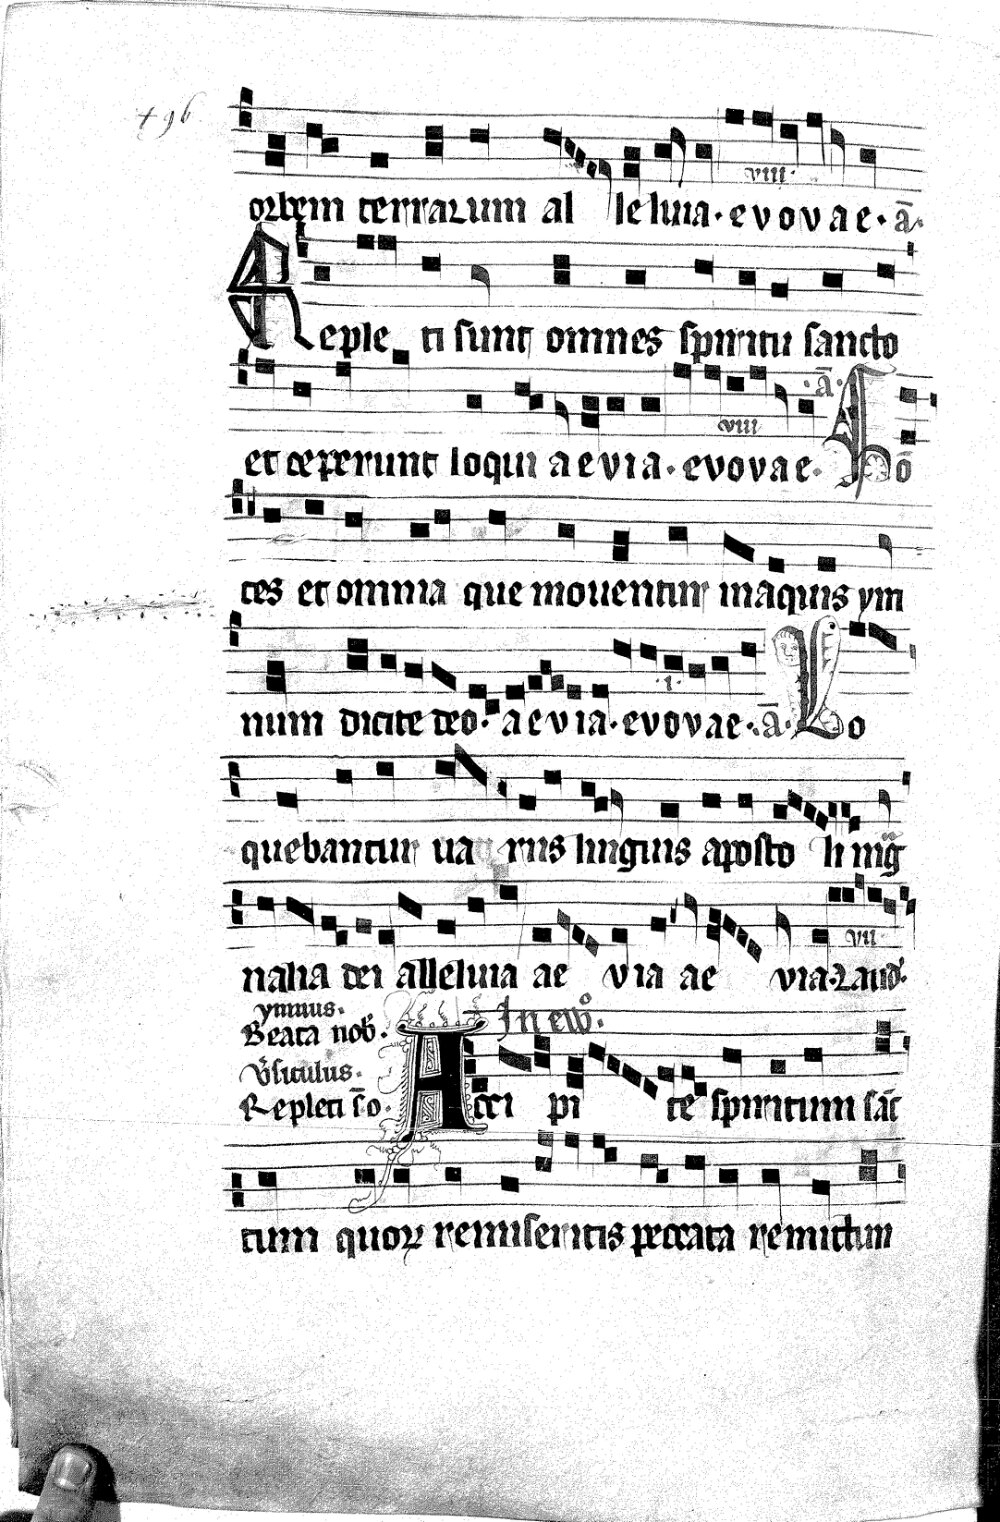 + 96
viii·
orbem terrarum al leluia · e v o v a e · ā·
Reple ti sunt omnes spiritu sancto
·ā·
viii
et ceperunt loqui a e v i a · e v o v a e · Fō
tes et omnia que mouentur in aquis ym
·i·
num dicite deo · a e v i a · e v o v a e · ā· Lo
quebantur ua riis linguis aposto li mag
vii
nalia dei alleluia ae via ae via · Laud'·
ymnus· In ewo·
Beata nob'·
V'siculus·
Repleti s̄o· Acci pi te spiritum sāc
tum quoꝝ remiseritis peccata remittun